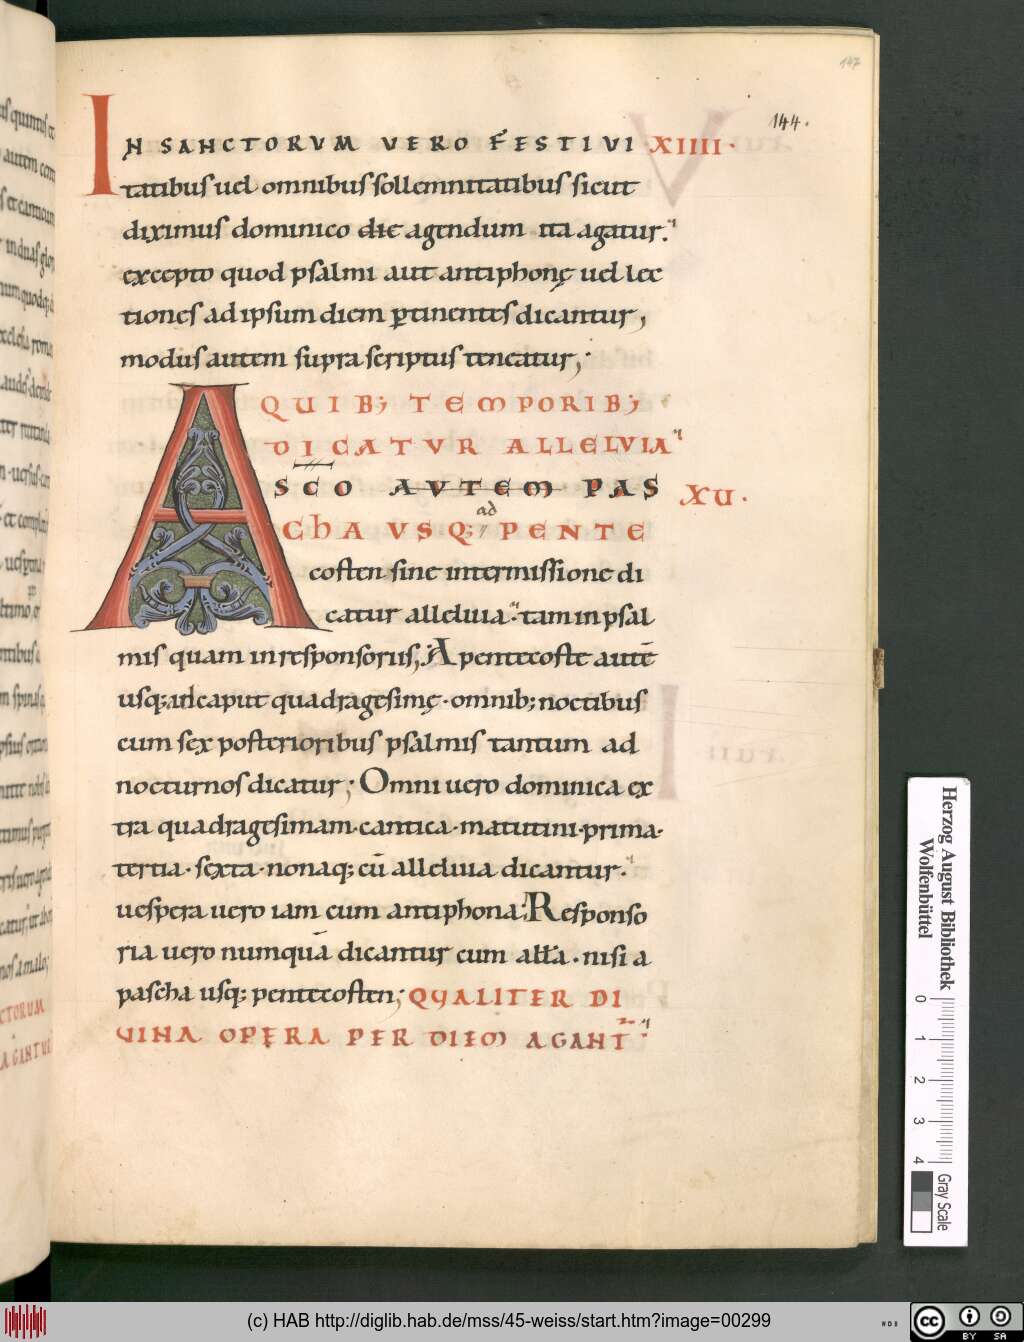 147
144.
IN SANCTORVM VERO FESTIVI XIIII·
tatibus uel omnibus sollemnitatibus sicut
diximus dominico die agendum ita agatur.
excepto quod psalmi aut antiphonę uel lec
tiones ad ipsum diem ꝑtinentes dicantur;
modus autem supra scriptus teneatur;
QUIB; TEMPORIB;
DICATVR ALLELVIA
ASCO AVTEM PAS XU·
ChA VSQ; ad PENTE
costen sine intermissione di
catur alleluia· tam in psal
mis quam in responsoriis; A pentecoste autē
usq; ad caput quadragesimę· omnib; noctibus
cum sex posterioribus psalmis tantum ad
nocturnos dicatur; Omni uero dominica ex
tra quadragesimam· cantica· matutini· prima·
tertia· sexta· nonaq; cū alleluia dicantur·
uespera uero iam cum antiphona; Responso
ria uero numquā dicantur cum all̄a· nisi a
pascha usq; pentecosten; QVALITER DI
VINA OPERA PER DIEM AGANT̄
Herzog August Bibliothek
Wolfenbüttel
0 1 2 3 4
Gray Scale
(c) HAB http://diglib.hab.de/mss/45-weiss/start.htm?image=00299
WOB
cc BY SA